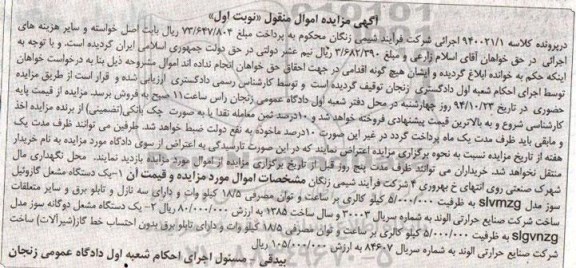 آگهی مزایده اموال منقول «نوبت اول»
درپرونده کلاسه ۹۴۰۰۲۱/۱ اجرائی شرکت فرآیند شیمی زنگان محکوم به پرداخت مبلغ ۷۳/۶۴۷/۸۰۴ ریال بابت اصل خواسته و سایر هزینه های
اجرائی در حق خواهان آقای اسلام زارعی و مبلغ ۳/۶۸۲/۳۹۰ ریال نیم عشر دولتی در حق دولت جمهوری اسلامی ایران گردیده است. و با توجه به
اینکه حکم به خوانده ابلاغ گردیده و ایشان هیچ گونه اقدامی در جهت احقاق حق خواهان انجام نداده اند اموال مشروحه ذیل بنا به درخواست خواهان
توسط اجرای احکام شعبه اول دادگستری زنجان توقیف گردیده است و توسط کارشناس رسمی دادگستری ارزیابی شده و قرار است از طریق مزایده
حضوری در تاریخ ۹۴/۱۰/۲۳ روز چهارشنبه در محل دفتر شعبه اول دادگاه عمومی زنجان راس ساعت ۱۱ صبح به فروش برسد. مزایده از قیمت پایه
کارشناسی شروع و به بالاترین قیمت پیشنهادی فروخته خواهد شد و ۱۰درصد ثمن معامله نقدا یا به صورت چک بانکی(تضمینی) از برنده مزایده اخذ
و مابقی باید ظرف مدت یک ماه پرداخت گردد در غیر این صورت ۱۰درصد ماخوذه به نفع دولت ضبط خواهد شد. طرفین می توانند ظرف مدت یک
هفته از تاریخ مزایده نسبت به نحوه برگزاری مزایده اعتراض نمایند که در این صورت تارسیدگی به اعتراض از سوی دادگاه مورد مزایده به نام خریدار
منتقل نخواهد شد. خریداران می توانند ظرف مدت پنج روز قبل از تاریخ برگزاری مزایده از اموال مورد مزایده بازدید نمایند. محل نگهداری مال
شهرک صنعتی روی انتهای خ بهروری ۴ شرکت فرآیند شیمی زنگان مشخصات اموال مورد مزایده و قیمت آن ۱-یک دستگاه مشعل گازوئیل
سوز مدل slvmzg به ظرفیت ۵/۰۰۰/۰۰۰ کیلو کالری بر ساعت و توان مصرفی ۱۸/۵ کیلو وات و دارای سه نازل و تابلو برق و سایر متعلقات
ساخت شرکت صنایع حرارتی الوند به شماره سریال ۳۰۰۰۳ و سال ساخت ۱۳۸۵ به ارزش ۸۰/۰۰۰/۰۰۰ ریال ۲- یک دستگاه مشعل دوگانه سوز مدل
slgvnzg به ظرفیت ۵/۰۰۰/۰۰۰ کیلو کالری بر ساعت و توان مصرفی ۱۸/۵ کیلو وات و دارای تابلو برق بدون احتساب خط گاز(شیرآلات) ساخت
شرکت صنایع حرارتی الوند به شماره سریال ۸۴۶۰۷ به ارزش ۱۰۵/۰۰۰/۰۰۰ ریال
بیدقی - مسئول اجرای احکام شعبه اول دادگاه عمومی زنجان